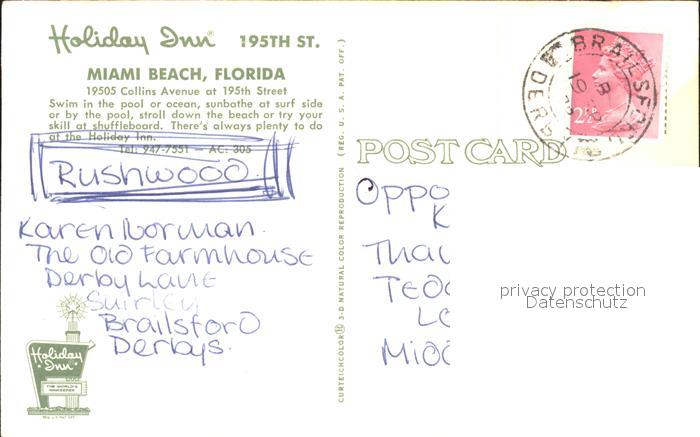 Holiday Inn® 195TH ST.
MIAMI BEACH, FLORIDA
19505 Collins Avenue at 195th Street
Swim in the pool or ocean, sunbathe at surf side
or by the pool, stroll down the beach or try your
skill at shuffleboard. There's always plenty to do
at the Holiday Inn.
Tel: 947-7551 — AC: 305
Rushwood
Karen Norman.
The Old Farmhouse
Derby Lane
Shirley
Brailsford
Derbys.
Holiday Inn
THE WORLD'S INNKEEPER
CURTEICHCOLOR® 3-D NATURAL COLOR REPRODUCTION (REG. U.S.A. PAT. OFF.)
POST CARD
BRAILSFORD
DERBY
2½P
Oppo
K
Tha
Ted
Le
Midd
privacy protection
Datenschutz